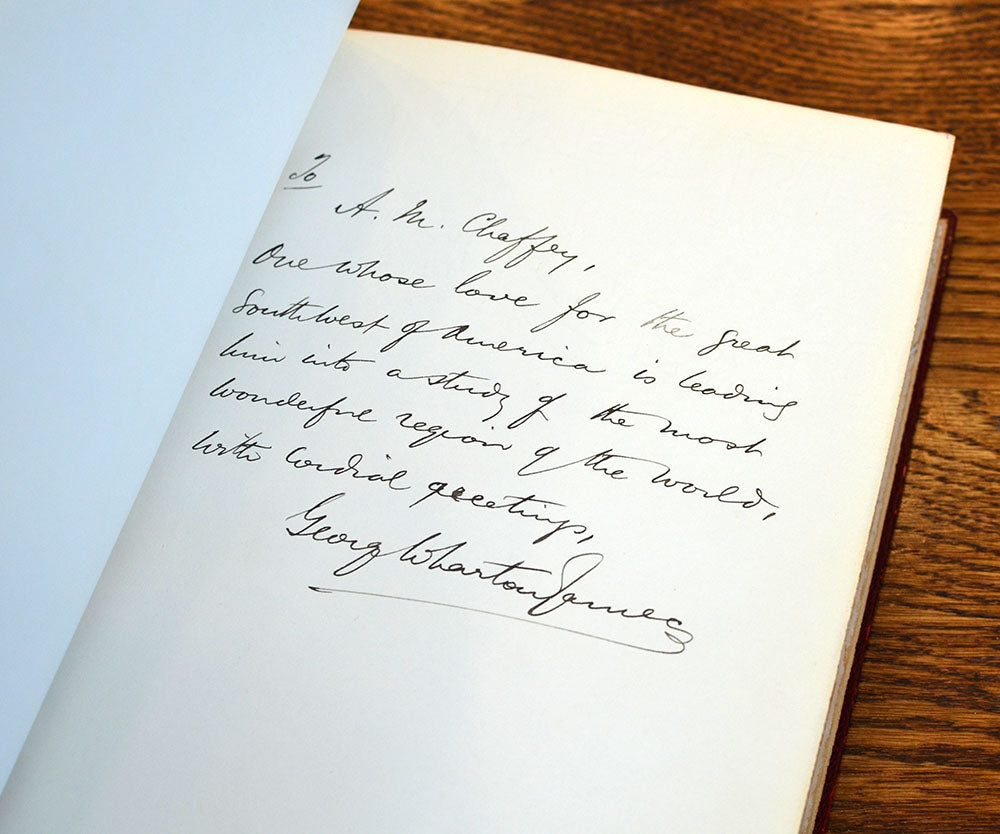 To
A. M. Chaffey,
One whose love for the great
Southwest of America is leading
him into a study of the most
wonderful region of the world,
With cordial greetings,
George Wharton James